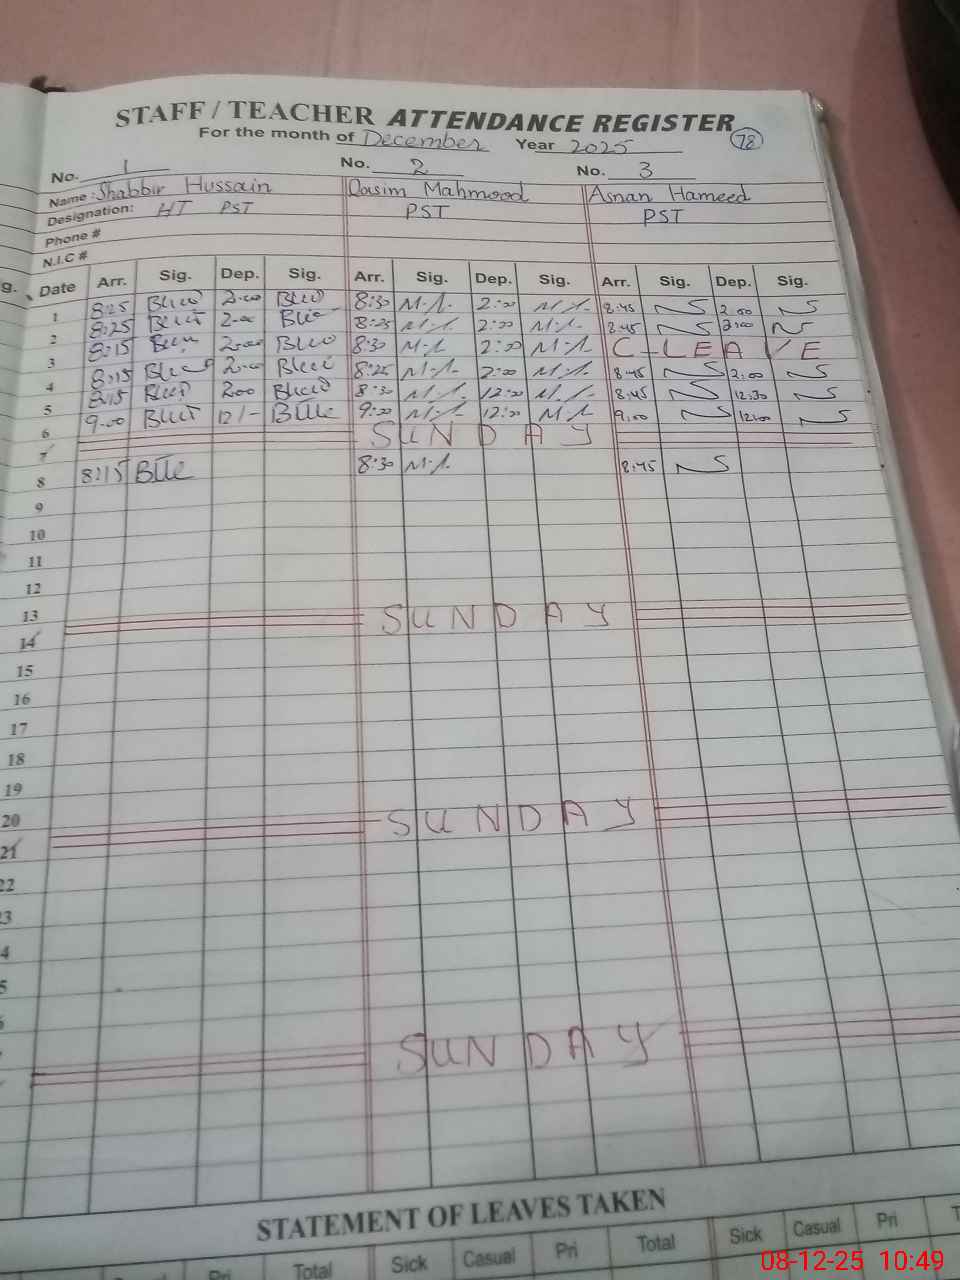 STAFF / TEACHER ATTENDANCE REGISTER
For the month of December Year 2025 78
No. 1 No. 2 No. 3
Name: Shabbir Hussain Qasim Mahmood Asnan Hameed
Designation: HT PST PST PST
Phone #
N.I.C #
g. Date Arr. Sig. Dep. Sig. Arr. Sig. Dep. Sig. Arr. Sig. Dep. Sig.
1 8:25 2:00 8:30 2:00 8:45 2:00
2 8:25 2:00 8:25 2:00 8:45 2:00
3 8:15 2:00 8:30 2:00 C-LEAVE
4 8:15 2:00 8:25 2:00 8:45 2:00
5 8:15 2:00 8:30 12:30 8:45 12:30
6 9:00 12/- 9:00 12:00 9:00 12:00
7 SUNDAY
8 8:15 8:30 8:45
9
10
11
12
13
14 SUNDAY
15
16
17
18
19
20
21 SUNDAY
22
23
4
5
SUNDAY
STATEMENT OF LEAVES TAKEN
Casual Pri Total Sick Casual Pri Total Sick Casual Pri T
08-12-25 10:49